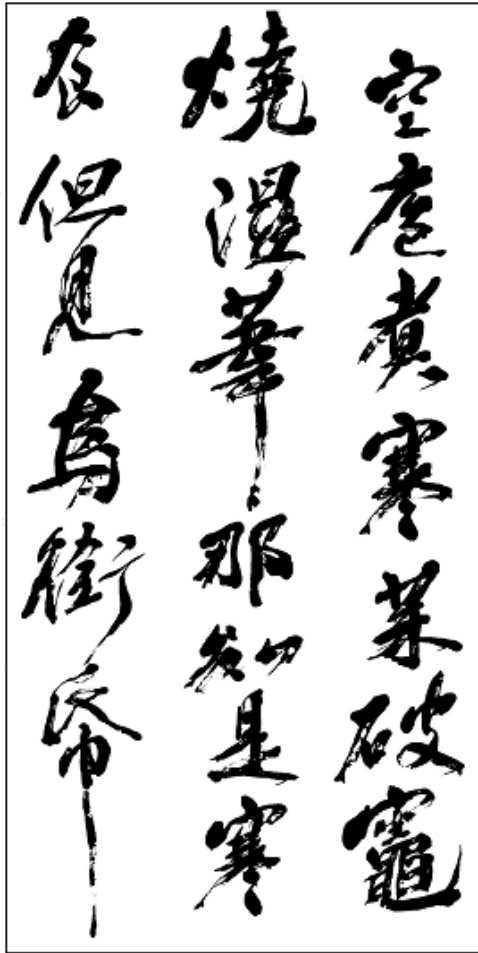 空庖煮寒菜破竈
燒濕葦那知是寒
食但見烏銜帋